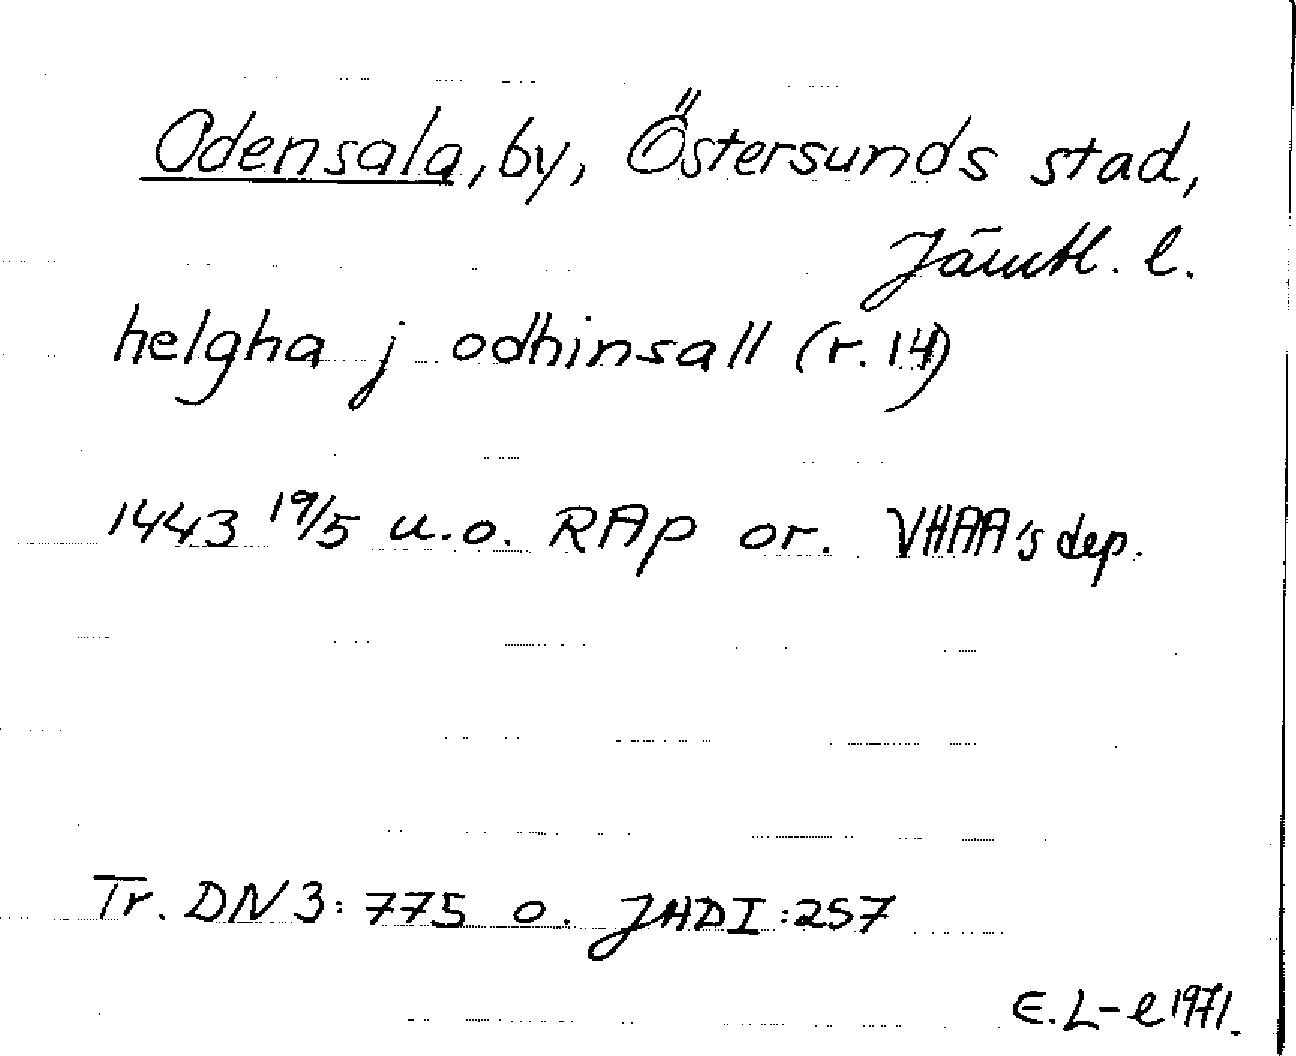 Odensala, by, Östersunds stad,
Jämtl. l.
helgha j odhinsall (r. 14)
1443 19/5 u.o. RAp or. VHAA's dep.
Tr. DN 3: 775 o. JHD I: 257
E. L-l 1971.